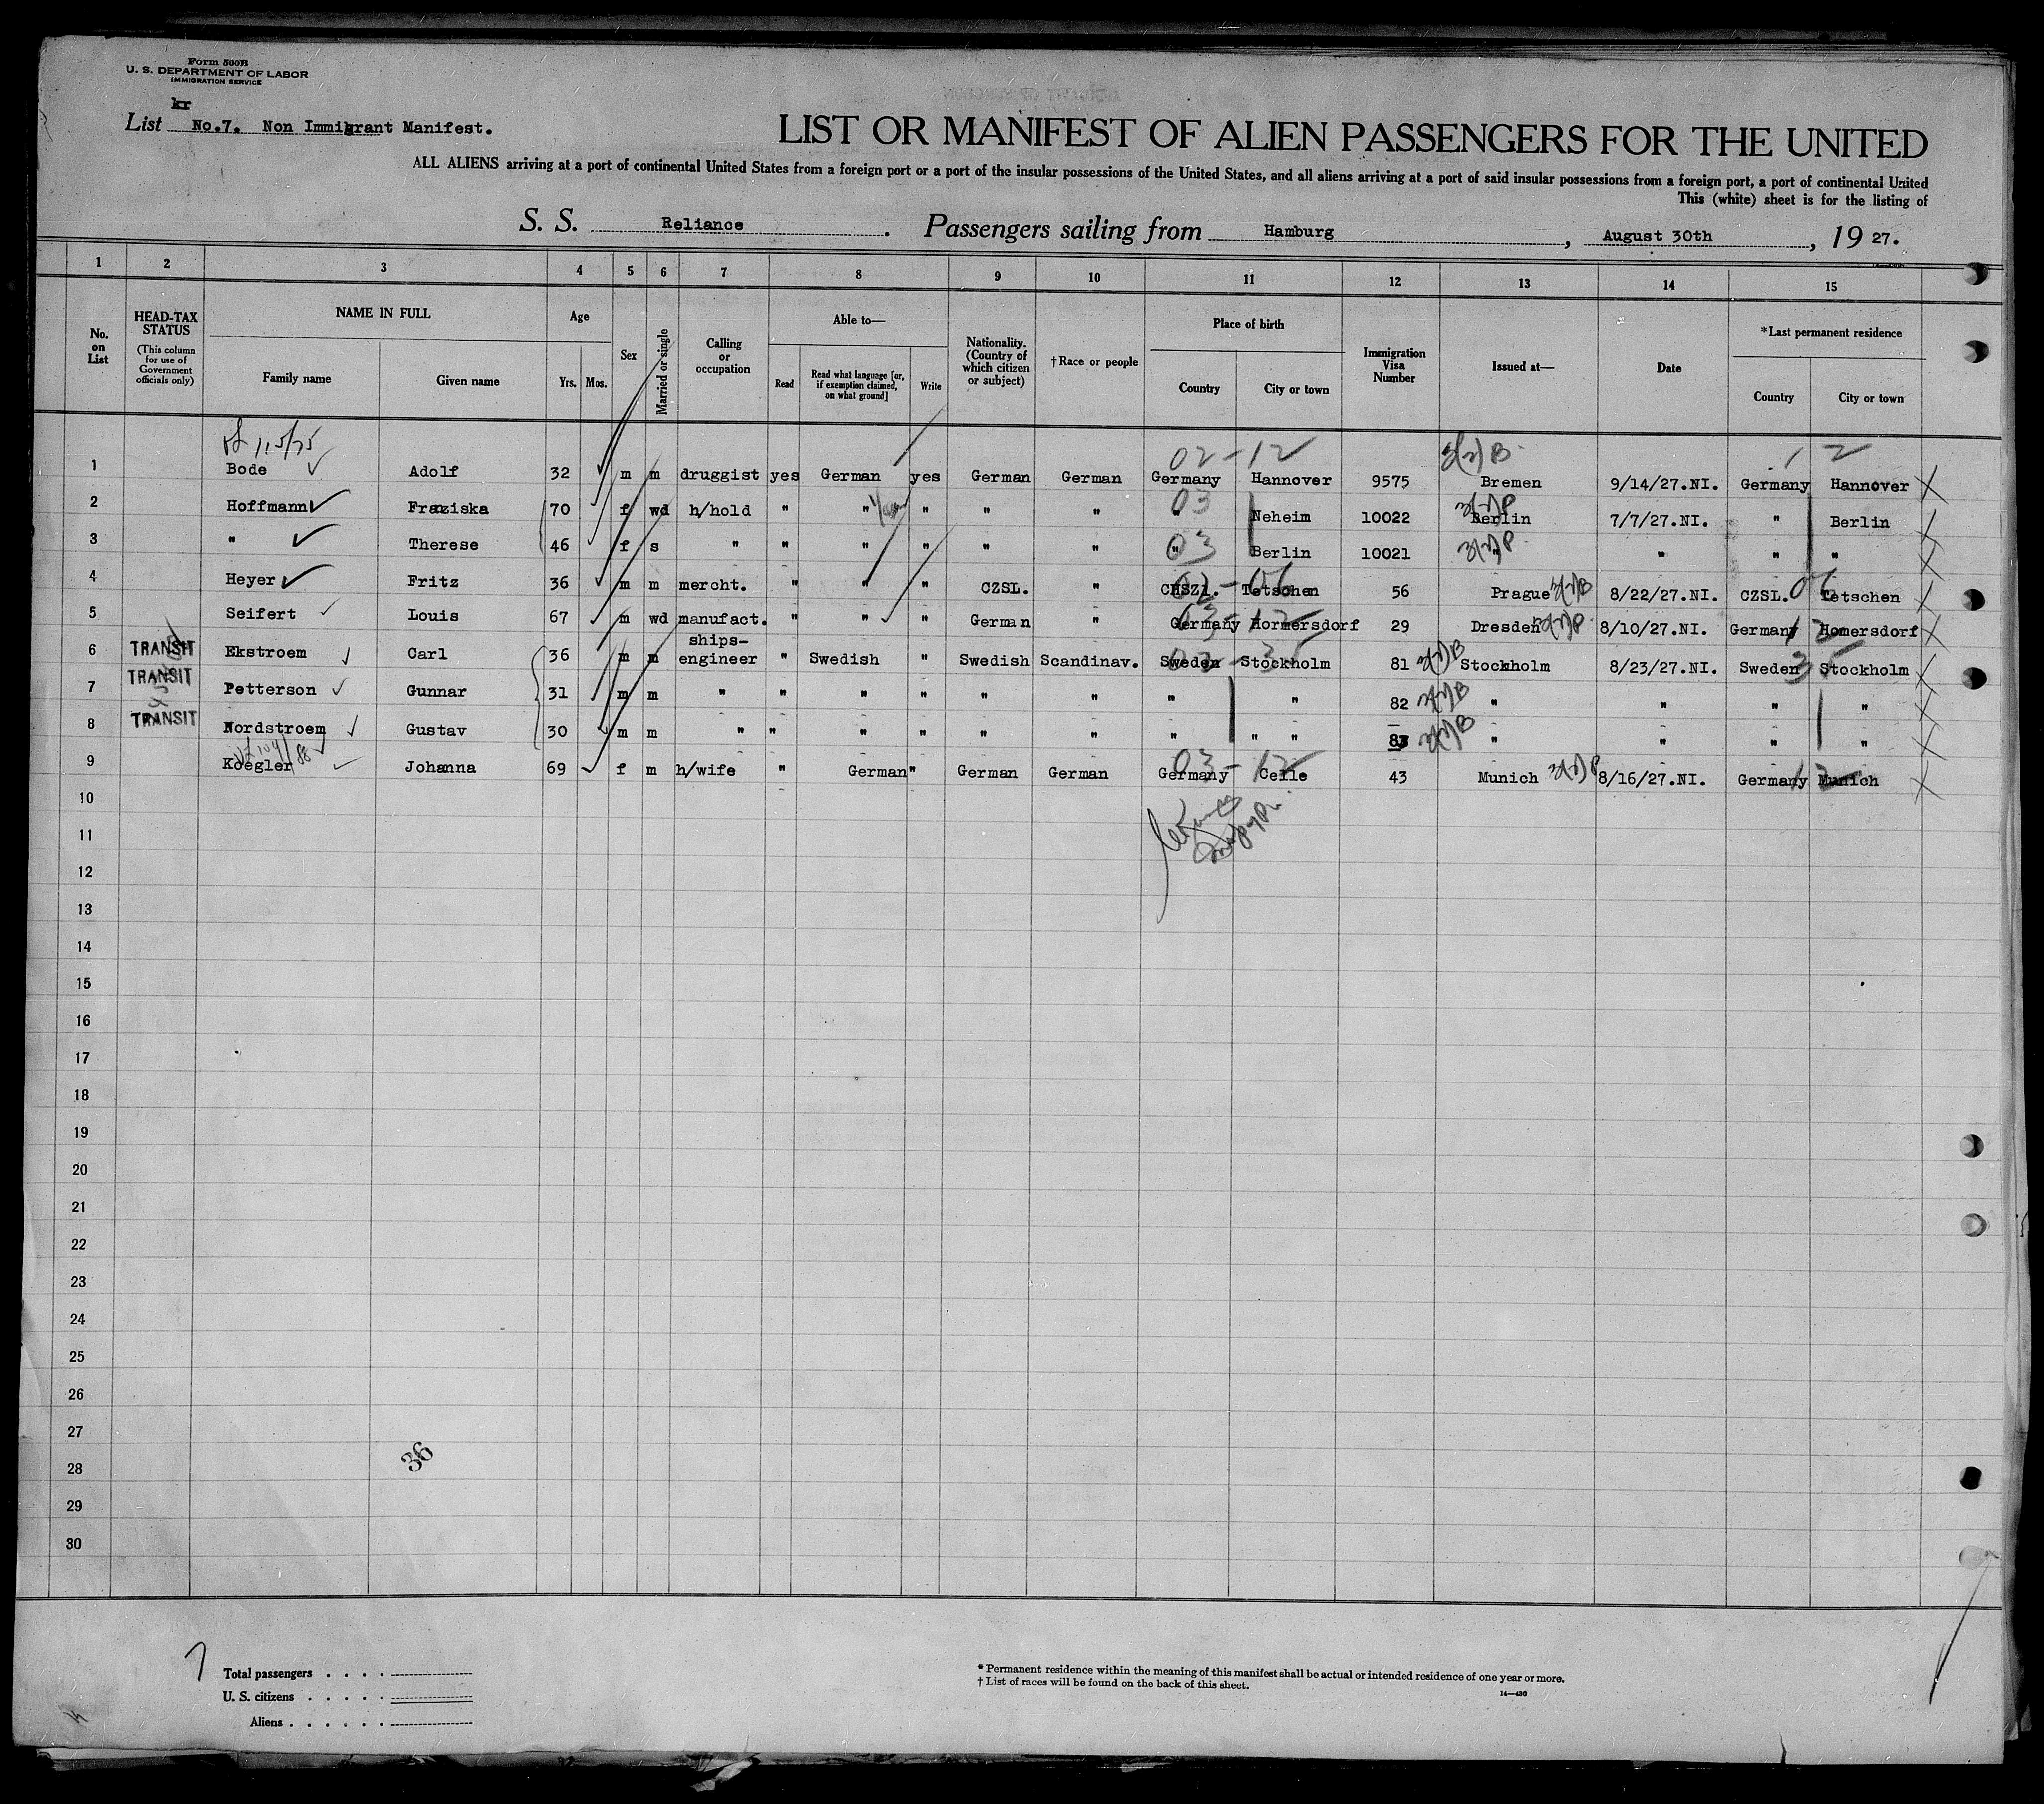 Form 500B
U. S. DEPARTMENT OF LABOR
IMMIGRATION SERVICE
kr
List No.7. Non Immigrant Manifest.
LIST OR MANIFEST OF ALIEN PASSENGERS FOR THE UNITED
ALL ALIENS arriving at a port of continental United States from a foreign port or a port of the insular possessions of the United States, and all aliens arriving at a port of said insular possessions from a foreign port, a port of continental United
This (white) sheet is for the listing of
S. S. Reliance. Passengers sailing from Hamburg, August 30th, 1927.
1 2 3 4 5 6 7 8 9 10 11 12 13 14 15
No. on List
HEAD-TAX STATUS
(This column for use of Government officials only)
NAME IN FULL
Family name
Given name
Age
Yrs. Mos.
Sex
Married or single
Calling or occupation
Able to—
Read
Read what language [or, if exemption claimed, on what ground]
Write
Nationality. (Country of which citizen or subject)
†Race or people
Place of birth
Country
City or town
Immigration Visa Number
Issued at—
Date
*Last permanent residence
Country
City or town
02-12 3(2)B 12
1 Bode Adolf 32 m m druggist yes German yes German German Germany Hannover 9575 Bremen 9/14/27.NI. Germany Hannover
2 Hoffmann Franziska 70 f wd h/hold " " " " " 03 Neheim 10022 Berlin 7/7/27.NI. " Berlin
3 " Therese 46 f s " " " " " " " 03 Berlin 10021 " " " "
4 Heyer Fritz 36 m m mercht. " " " CZSL. " CHSZl. Tetschen 56 Prague 3(2)B 8/22/27.NI. CZSL. Tetschen
5 Seifert Louis 67 m wd manufact. " " " German " Germany Hormersdorf 29 Dresden 8/10/27.NI. Germany Homersdorf
6 TRANSIT Ekstroem Carl 36 m m ships-engineer " Swedish " Swedish Scandinav. Sweden Stockholm 81 3(2)B Stockholm 8/23/27.NI. Sweden Stockholm
7 TRANSIT Petterson Gunnar 31 m m " " " " " " " " 82 3(2)B " " " "
8 TRANSIT Nordstroem Gustav 30 m m " " " " " " " " " 83 3(2)B " " " "
9 Koegler Johanna 69 f m h/wife " German " German German Germany Celle 43 Munich 8/16/27.NI. Germany Munich
10
11
12
13
14
15
16
17
18
19
20
21
22
23
24
25
26
27
28
29
30
36
Total passengers . . . .
U. S. citizens . . . . .
Aliens . . . . . .
* Permanent residence within the meaning of this manifest shall be actual or intended residence of one year or more.
† List of races will be found on the back of this sheet.
14—430